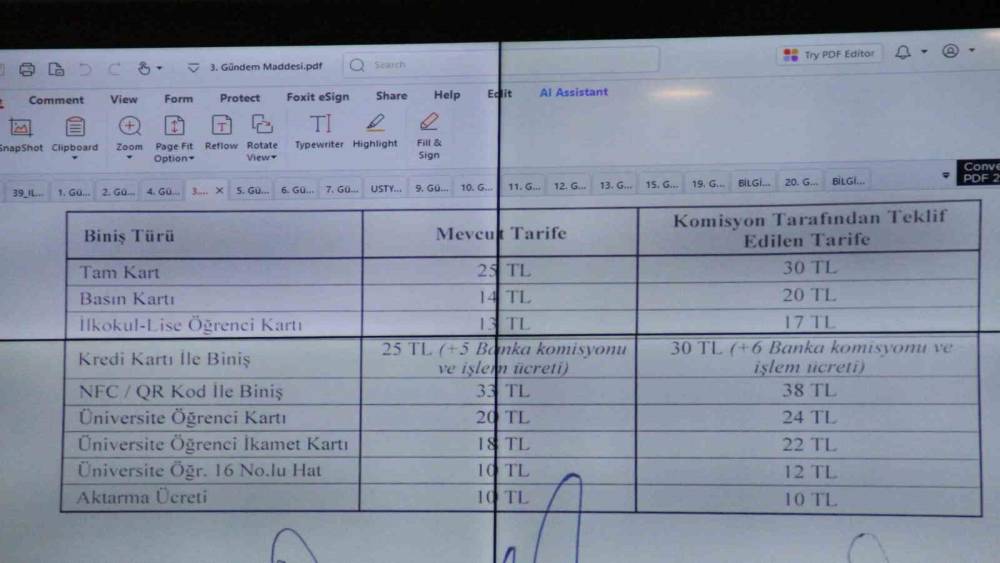 3. Gündem Maddesi.pdf
Search
Try PDF Editor
Comment View Form Protect Foxit eSign Share Help Edit AI Assistant
SnapShot Clipboard Zoom Page Fit Option Reflow Rotate View Typewriter Highlight Fill & Sign
39_IL... 1. Gü... 2. Gü... 4. Gü... 3.... 5. Gü... 6. Gü... 7. Gü... USTY... 9. Gü... 10. G... 11. G... 12. G... 13. G... 15. G... 19. G... BİLGİ... 20. G... BİLGİ...
PDF 2
Biniş Türü Mevcut Tarife Komisyon Tarafından Teklif
Edilen Tarife
Tam Kart 25 TL 30 TL
Basın Kartı 14 TL 20 TL
İlkokul-Lise Öğrenci Kartı 13 TL 17 TL
Kredi Kartı İle Biniş 25 TL (+5 Banka komisyonu ve işlem ücreti) 30 TL (+6 Banka komisyonu ve işlem ücreti)
NFC / QR Kod İle Biniş 33 TL 38 TL
Üniversite Öğrenci Kartı 20 TL 24 TL
Üniversite Öğrenci İkamet Kartı 18 TL 22 TL
Üniversite Öğr. 16 No.lu Hat 10 TL 12 TL
Aktarma Ücreti 10 TL 10 TL